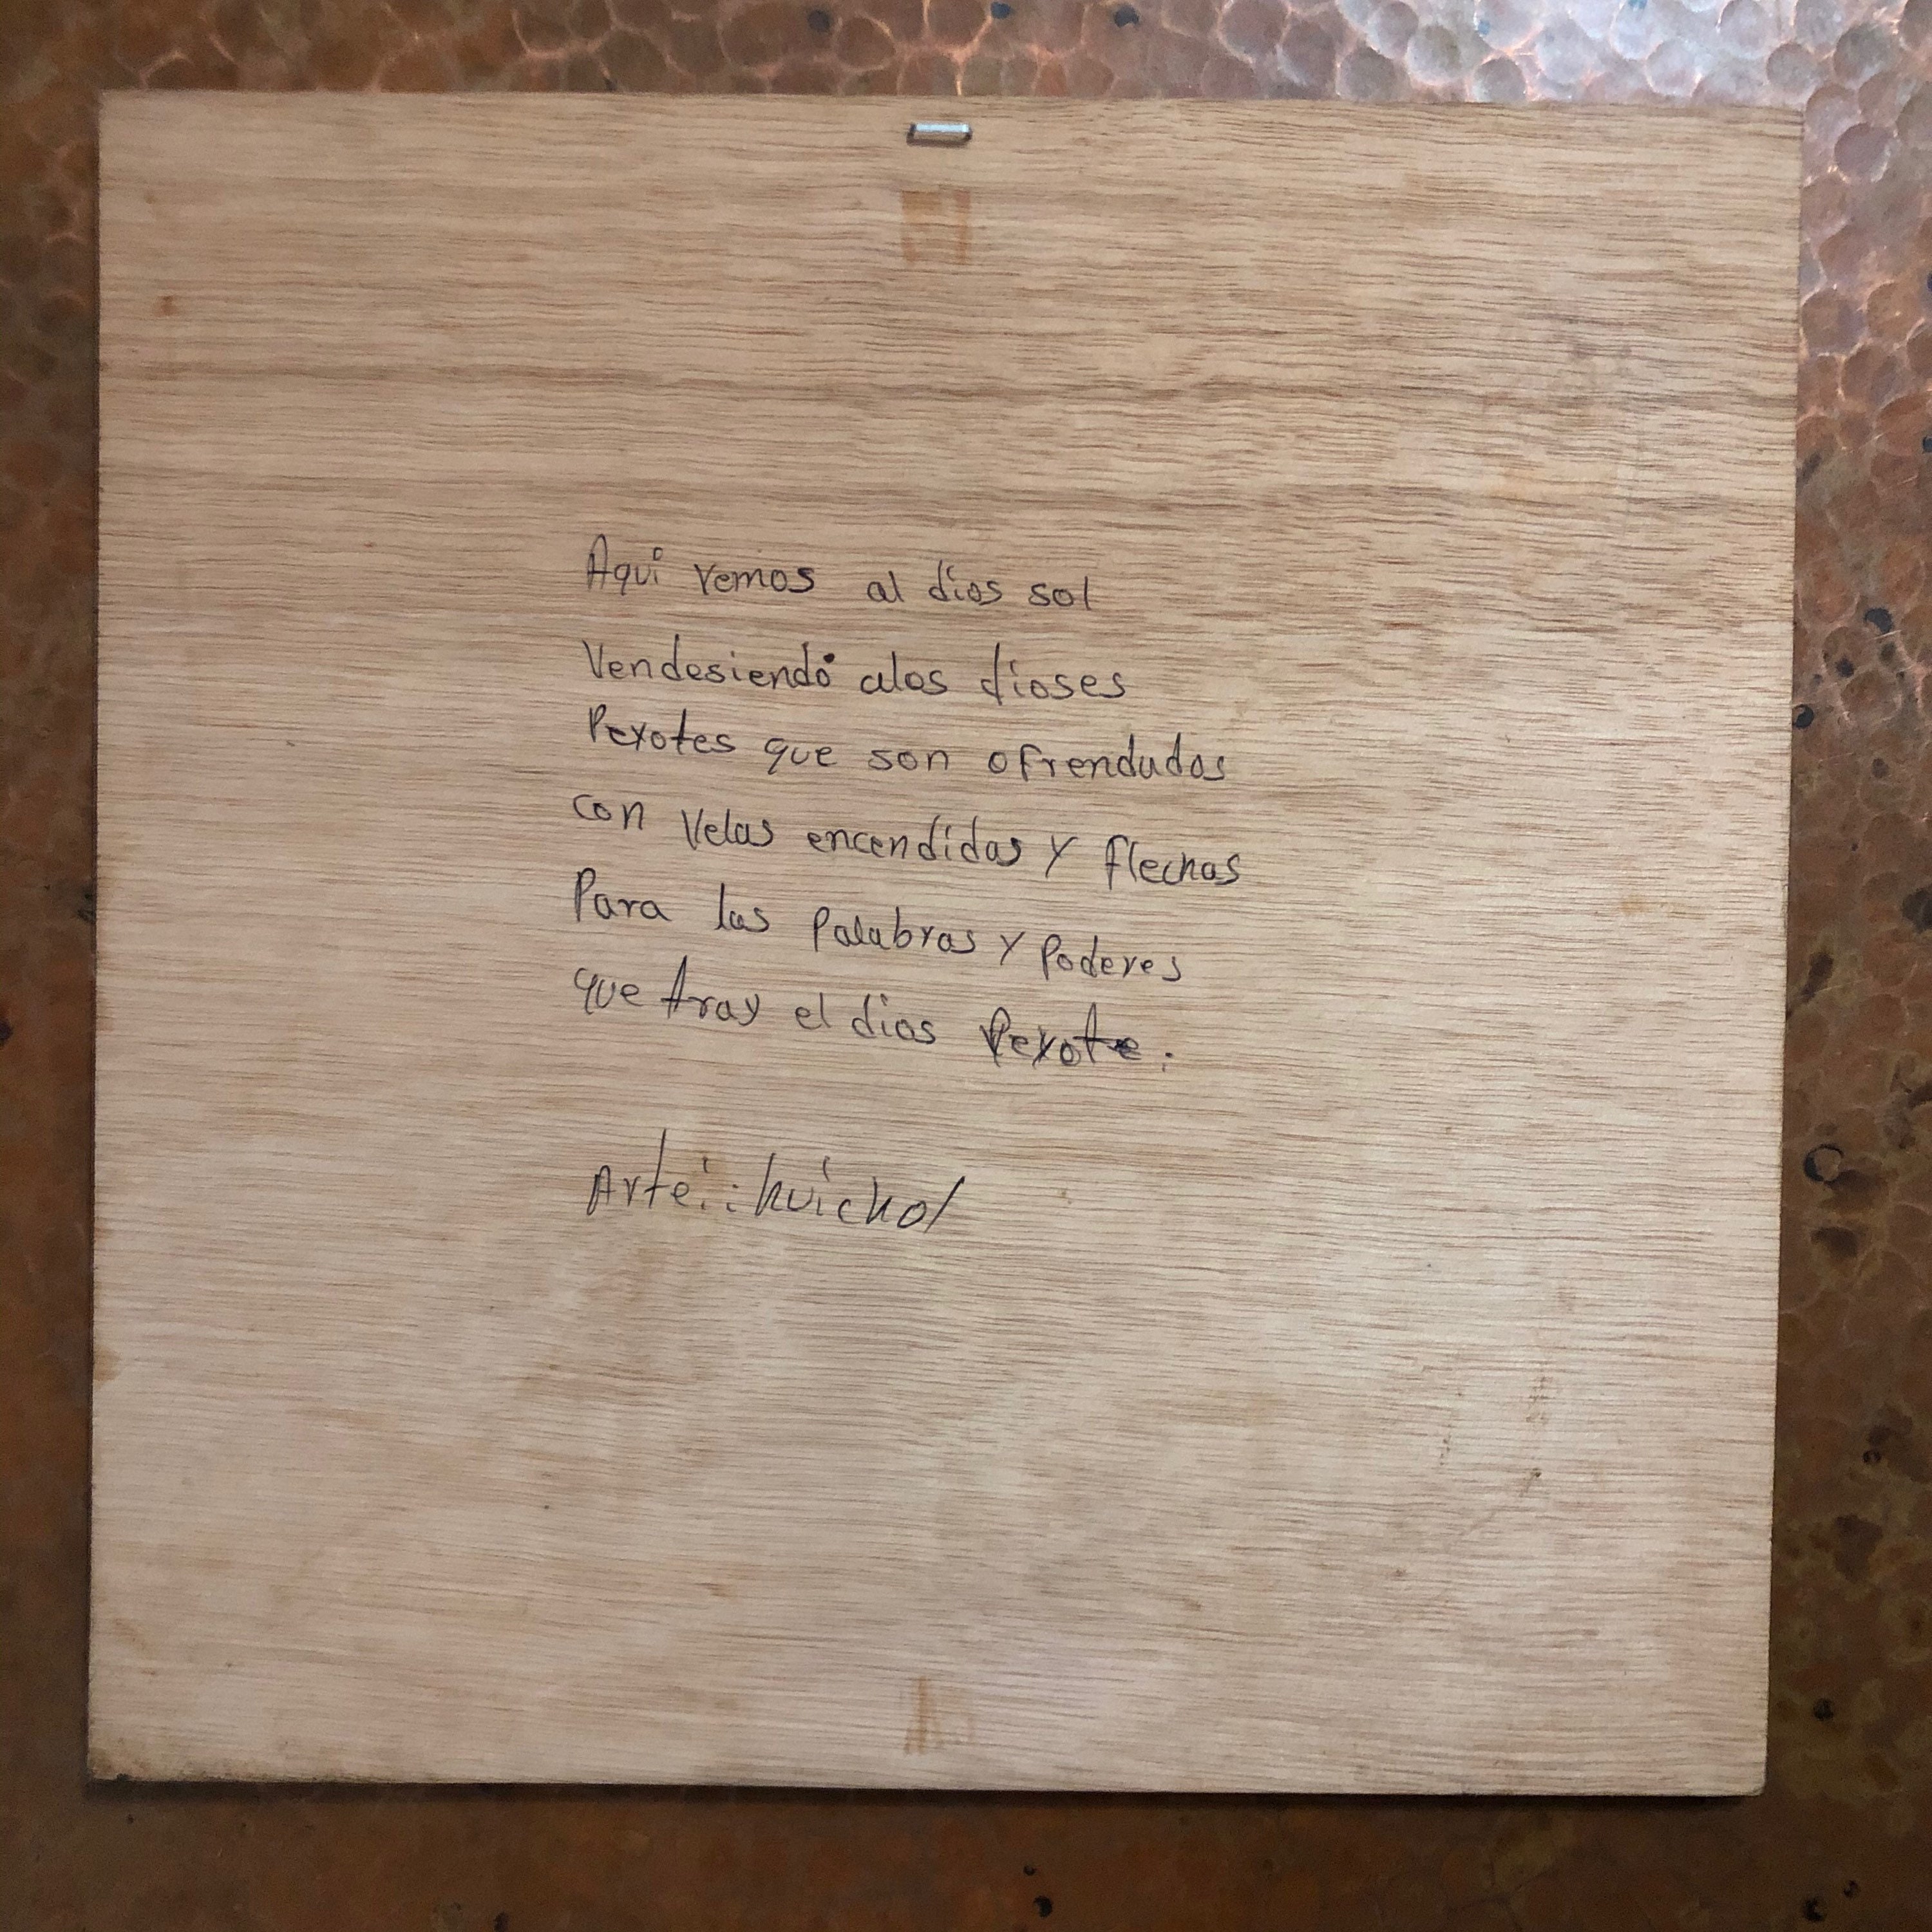 Aqui vemos al dios sol
Vendesiendo alos dioses
Peyotes que son ofrendados
con Velas encendidas y flechas
Para las Palabras y Poderes
que tray el dios Peyote.
Arte: huichol